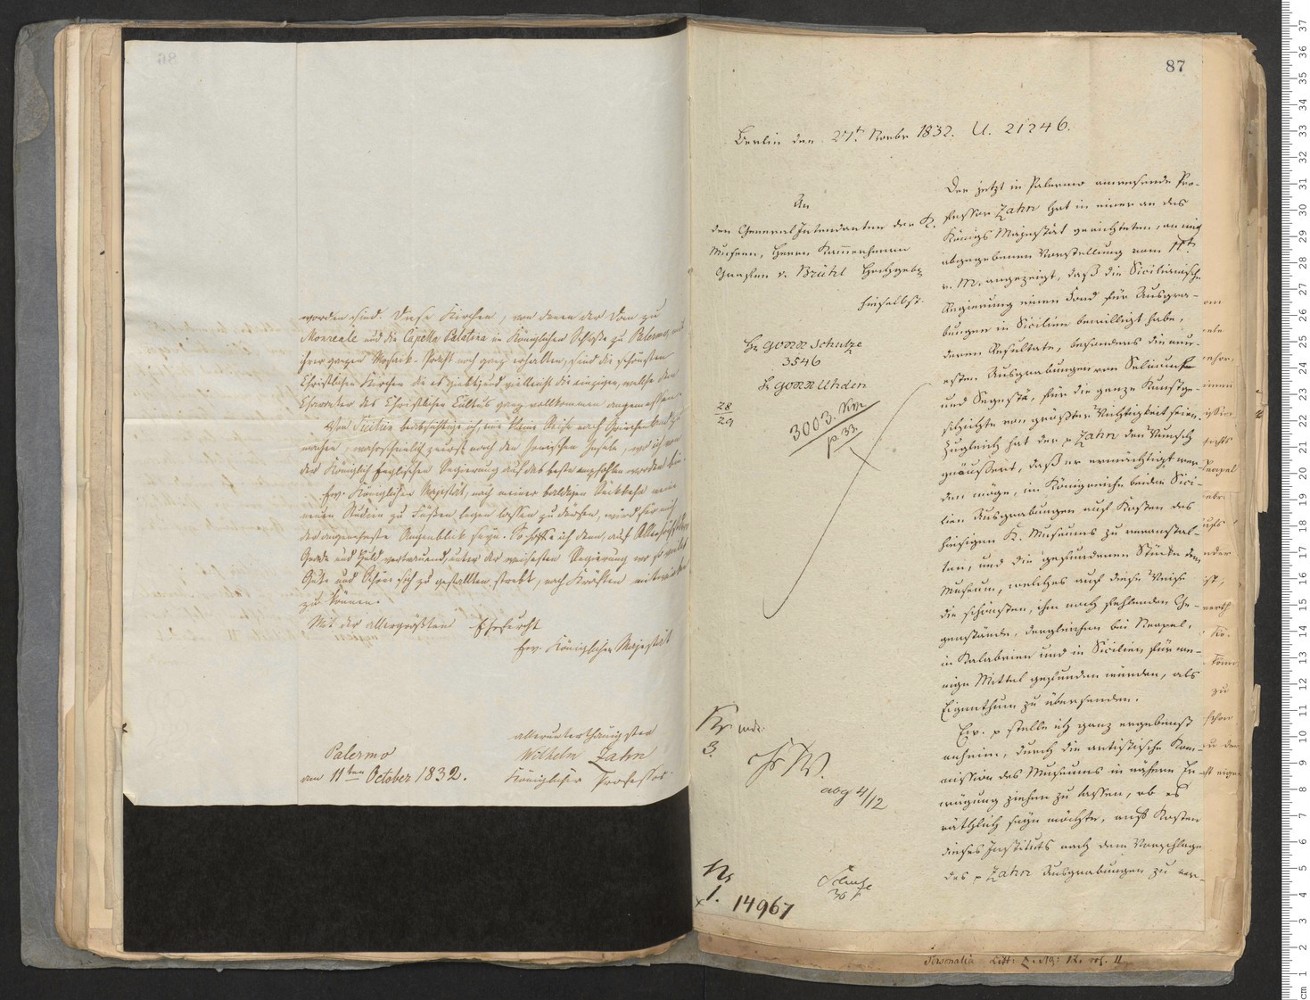 worden sind. Diese Kirchen, von denen der Dom zu
Monreale und die Capella Palatina im Königlichen Schlosse zu Palermo, mit
ihrer ganzen Mosaik-Pracht noch ganz erhalten, sind die schönsten
Christlichen Kirchen die es giebt, und vielleicht die einzigen, welche dem
Character des Christlichen Cultus ganz vollkommen angemessen
Von Sicilien beabsichtige ich, eine kleine Reise nach Griechenland zu
machen, wahrscheinlich zuerst nach den Ionischen Inseln, wo ich von
der Königlich Englischen Regierung auf das beste empfohlen worden bin
Ew. Königlichen Majestät, nach meiner baldigen Rückkehr meine
neuen Studien zu Füßen legen lassen zu dürfen, wird für mich
der angenehmste Augenblick seyn. So hoffe ich denn, auf Allerhöchste
Gnade und Huld vertrauend, unter der weisesten Regierung wo so viel
Gutes und Schönes sich zu gestallten strebt, nach Kräften mitwirken
zu können.
Mit der allergrößten Ehrfurcht
Ew. Königlichen Majestät
allerunterthänigster
Palermo
Wilhelm Zahn
am 11ten October 1832.
Königlicher Professor.
87
Berlin den 27t. Novbr 1832. U. 21246.
An
den General Intendanten der K.
Museen, Herrn Kammerherrn
Grafen v. Brühl Hochgeb.
hieselbst.
H. GORR Schulze
3546
H. GORR Uhden
28
29
3003.
p. 33.
Der jetzt in Palermo anwesende Pro-
fessor Zahn hat in einer an des
Königs Majestät gerichteten, an mich
abgegebenen Vorstellung vom 11ten
v. M. angezeigt, daß die Sicilianische
Regierung einen Fond für Ausgra-
bungen in Sicilien bewilligt habe,
deren Resultate, besonders die neu-
esten Ausgrabungen von Selinunt
und Segesta, für die ganze Kunstge-
schichte von größter Wichtigkeit seien.
Zugleich hat der p Zahn den Wunsch
geäußert, daß er ermächtigt wer-
den möge, im Königreiche beider Sici-
lien Ausgrabungen auf Kosten des
hiesigen K. Museums zu veranstal-
ten, und die gefundenen Stücke dem
Museum, welches auf diese Weise
die schönsten, ihm noch fehlenden Ge-
genstände, dergleichen bei Neapel,
in Kalabrien und in Sicilien für we-
nige Mittel gefunden würden, als
Eigenthum zu übersenden.
Ew. p stelle ich ganz ergebenst
anheim, durch die artistische Kom-
mission des Museums in nähere Er-
wägung ziehen zu lassen, ob es
räthlich seyn möchte, auf Kosten
dieses Instituts nach dem Vorschlage
des p Zahn Ausgrabungen zu ver-
3.
abg 4/12
N
1. 14967
Schulze
30
Personalia Litt: Z. No: 12. vol. II